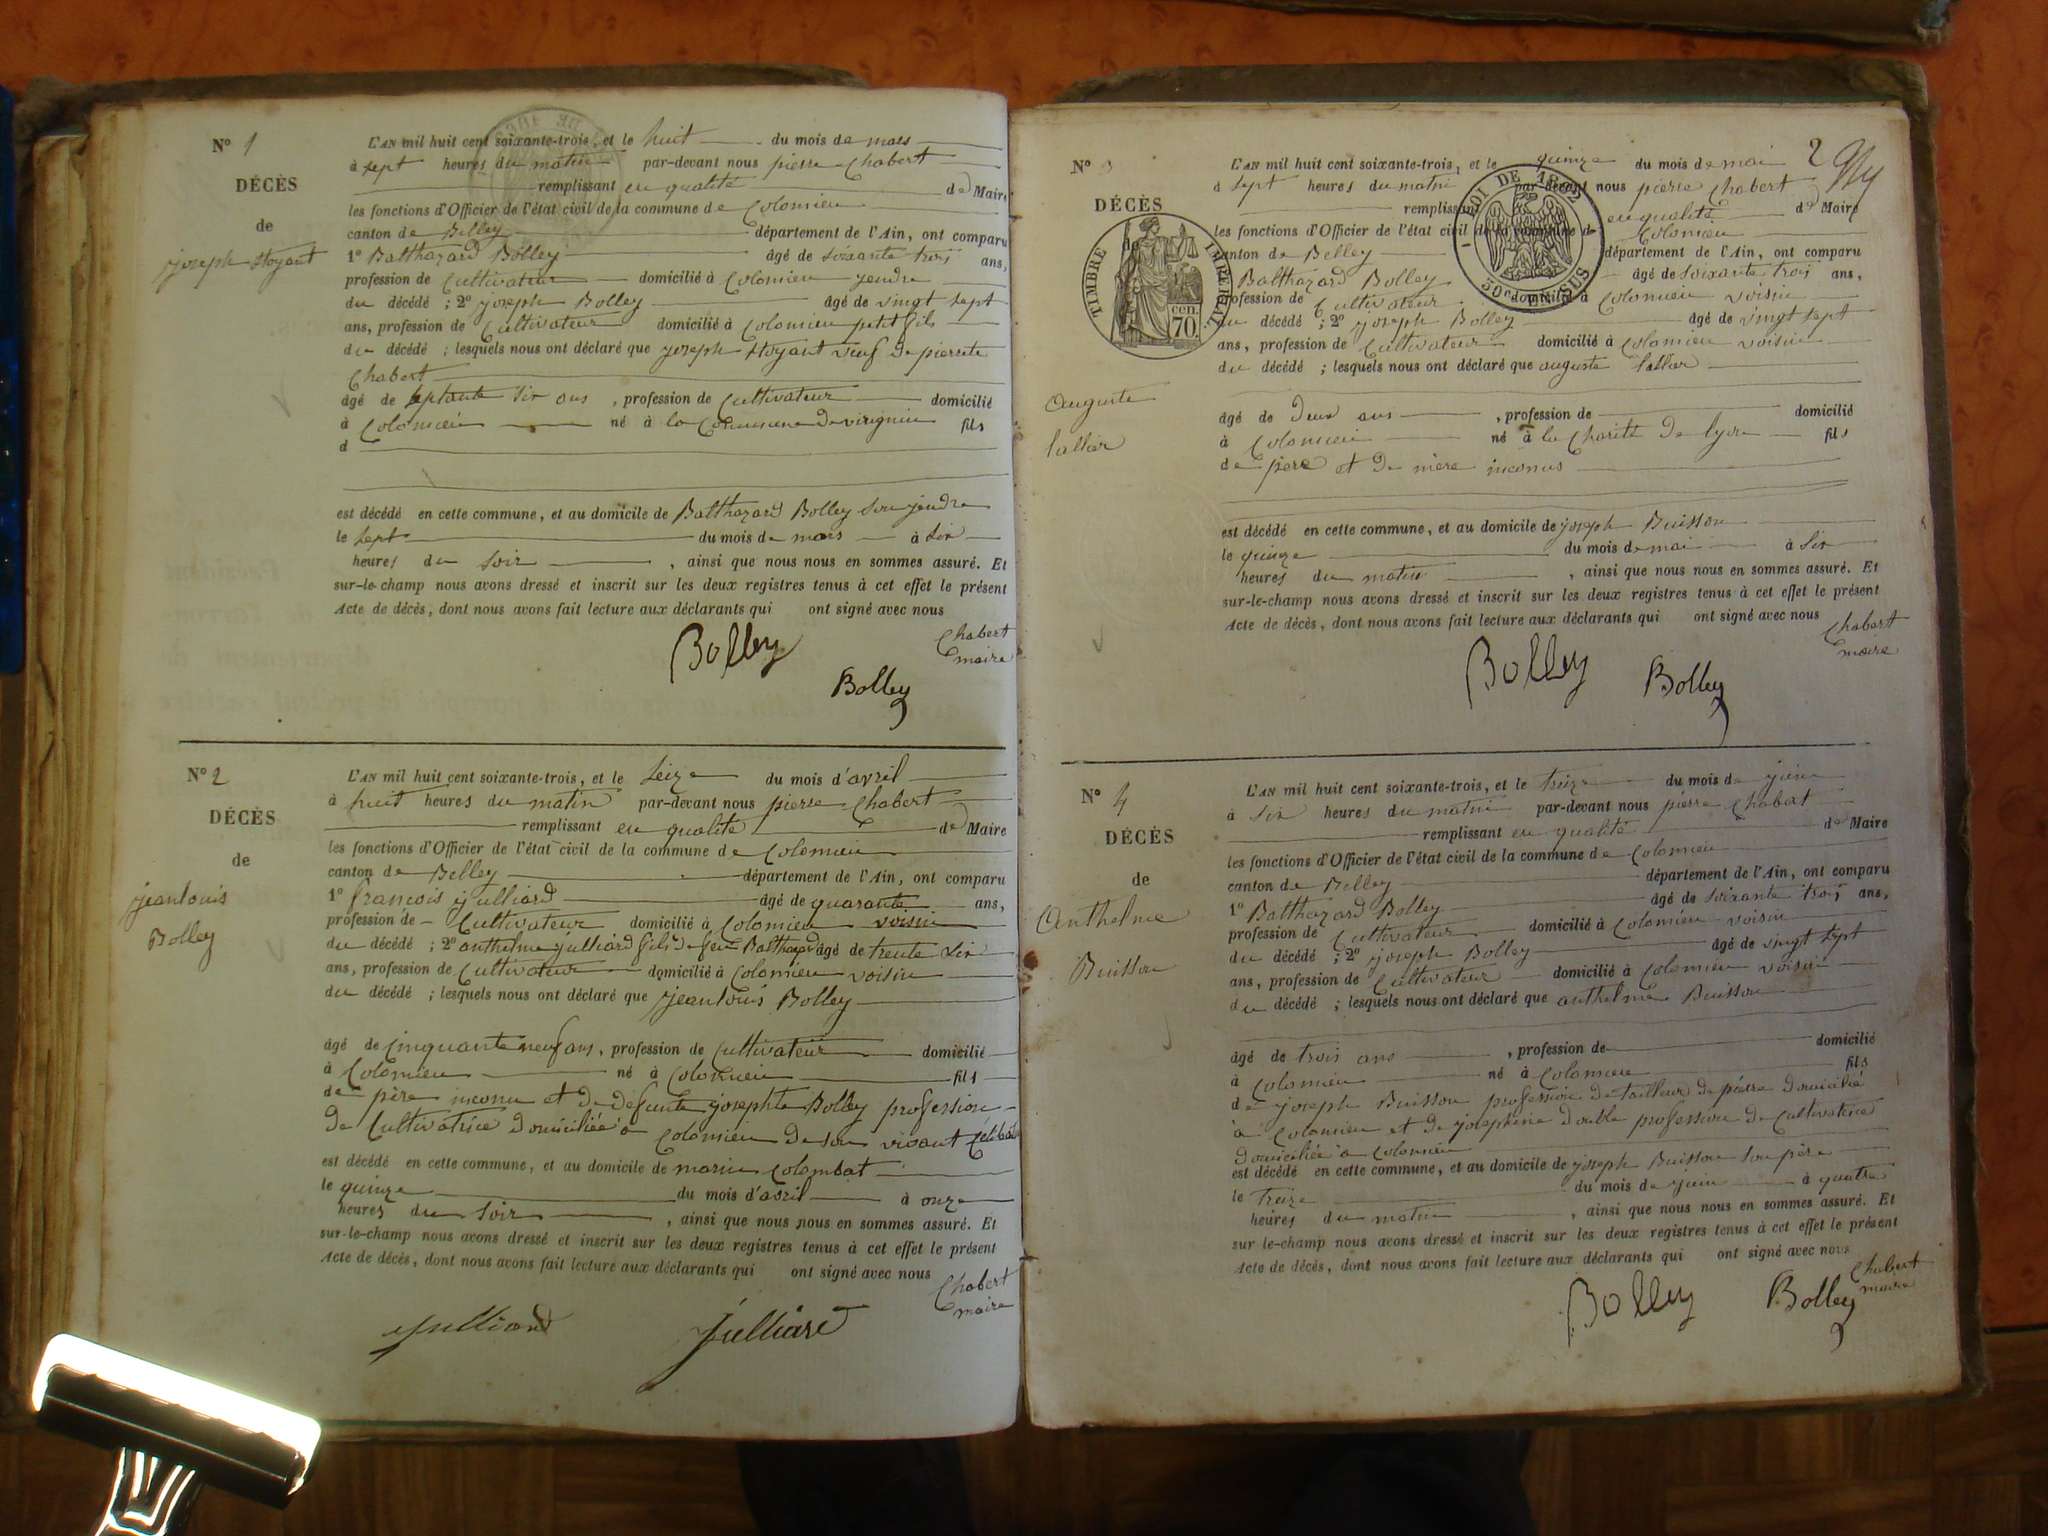 N° 1
DÉCÈS
de
joseph
L'AN mil huit cent soixante-trois, et le huit du mois de mars
à sept heures du matin par-devant nous pierre Chabert
remplissant en qualité de Maire
les fonctions d'Officier de l'état civil de la commune de Colomieu
canton de Belley département de l'Ain, ont comparu
1° Balthazard Bolley âgé de soixante trois ans,
profession de Cultivateur domicilié à Colomieu jendre
du décédé ; 2° joseph Bolley âgé de vingt sept
ans, profession de Cultivateur domicilié à Colomieu petit fils
du décédé ; lesquels nous ont déclaré que joseph veuf de pierrette
Chabert
âgé de septante six ans , profession de Cultivateur domicilié
à Colomieu né à la Commune de virignin fils
d
est décédé en cette commune, et au domicile de Balthazard Bolley son jendre
le sept du mois de mars à six
heures du soir , ainsi que nous nous en sommes assuré. Et
sur-le-champ nous avons dressé et inscrit sur les deux registres tenus à cet effet le présent
Acte de décès, dont nous avons fait lecture aux déclarants qui ont signé avec nous
Chabert
maire
Bolley
Bolley
N° 2
DÉCÈS
de
jeanlouis
Bolley
L'AN mil huit cent soixante-trois, et le seize du mois d'avril
à huit heures du matin par-devant nous pierre Chabert
remplissant en qualité de Maire
les fonctions d'Officier de l'état civil de la commune de Colomieu
canton de Belley département de l'Ain, ont comparu
1° francois julliard âgé de quarante ans,
profession de Cultivateur domicilié à Colomieu voisin
du décédé ; 2° anthelme julliard fils de feu Balthazard âgé de trente six
ans, profession de Cultivateur domicilié à Colomieu voisin
du décédé ; lesquels nous ont déclaré que jeanlouis Bolley
âgé de cinquante neuf ans, profession de Cultivateur domicilié
à Colomieu né à Colomieu fils
de père inconu et de defunte josephte Bolley profession
de Cultivatrice domiciliée à Colomieu de son vivant
est décédé en cette commune, et au domicile de marin Colombat
le quinze du mois d'avril à onze
heures du soir , ainsi que nous nous en sommes assuré. Et
sur-le-champ nous avons dressé et inscrit sur les deux registres tenus à cet effet le présent
Acte de décès, dont nous avons fait lecture aux déclarants qui ont signé avec nous
Chabert
maire
julliard
Julliard
2
N° 3
DÉCÈS
TIMBRE IMPÉRIAL
70 cen.
LOI DE 1862
50e EN SUS
auguste
L'AN mil huit cent soixante-trois, et le quinze du mois de mai
à sept heures du matin par-devant nous pierre Chabert
remplissant en qualité de Maire
les fonctions d'Officier de l'état civil de la commune de Colomieu
canton de Belley département de l'Ain, ont comparu
Balthazard Bolley âgé de soixante trois ans,
profession de Cultivateur domicilié à Colomieu voisin
du décédé ; 2° joseph Bolley âgé de vingt sept
ans, profession de Cultivateur domicilié à Colomieu voisin
du décédé ; lesquels nous ont déclaré que auguste
âgé de deux ans , profession de domicilié
à Colomieu né à la Charité de lyon fils
de père et de mère inconus
est décédé en cette commune, et au domicile de joseph Buisson
le quinze du mois de mai à six
heures du matin , ainsi que nous nous en sommes assuré. Et
sur-le-champ nous avons dressé et inscrit sur les deux registres tenus à cet effet le présent
Acte de décès, dont nous avons fait lecture aux déclarants qui ont signé avec nous
Chabert
maire
Bolley
Bolley
N° 4
DÉCÈS
de
Anthelme
Buisson
L'AN mil huit cent soixante-trois, et le treize du mois de juin
à six heures du matin par-devant nous pierre Chabert
remplissant en qualité de Maire
les fonctions d'Officier de l'état civil de la commune de Colomieu
canton de Belley département de l'Ain, ont comparu
1° Balthazard Bolley âgé de soixante trois ans,
profession de Cultivateur domicilié à Colomieu voisin
du décédé ; 2° joseph Bolley âgé de vingt sept
ans, profession de Cultivateur domicilié à Colomieu voisin
du décédé ; lesquels nous ont déclaré que anthelme Buisson
âgé de trois ans , profession de domicilié
à Colomieu né à Colomieu fils
de joseph Buisson profession de tailleur de pierre domicilié
à Colomieu et de josephine double profession de Cultivatrice
domiciliée à Colomieu
est décédé en cette commune, et au domicile de joseph Buisson son père
le treize du mois de juin à quatre
heures du matin , ainsi que nous nous en sommes assuré. Et
sur le-champ nous avons dressé et inscrit sur les deux registres tenus à cet effet le présent
Acte de décès, dont nous avons fait lecture aux déclarants qui ont signé avec nous
Chabert
maire
Bolley
Bolley